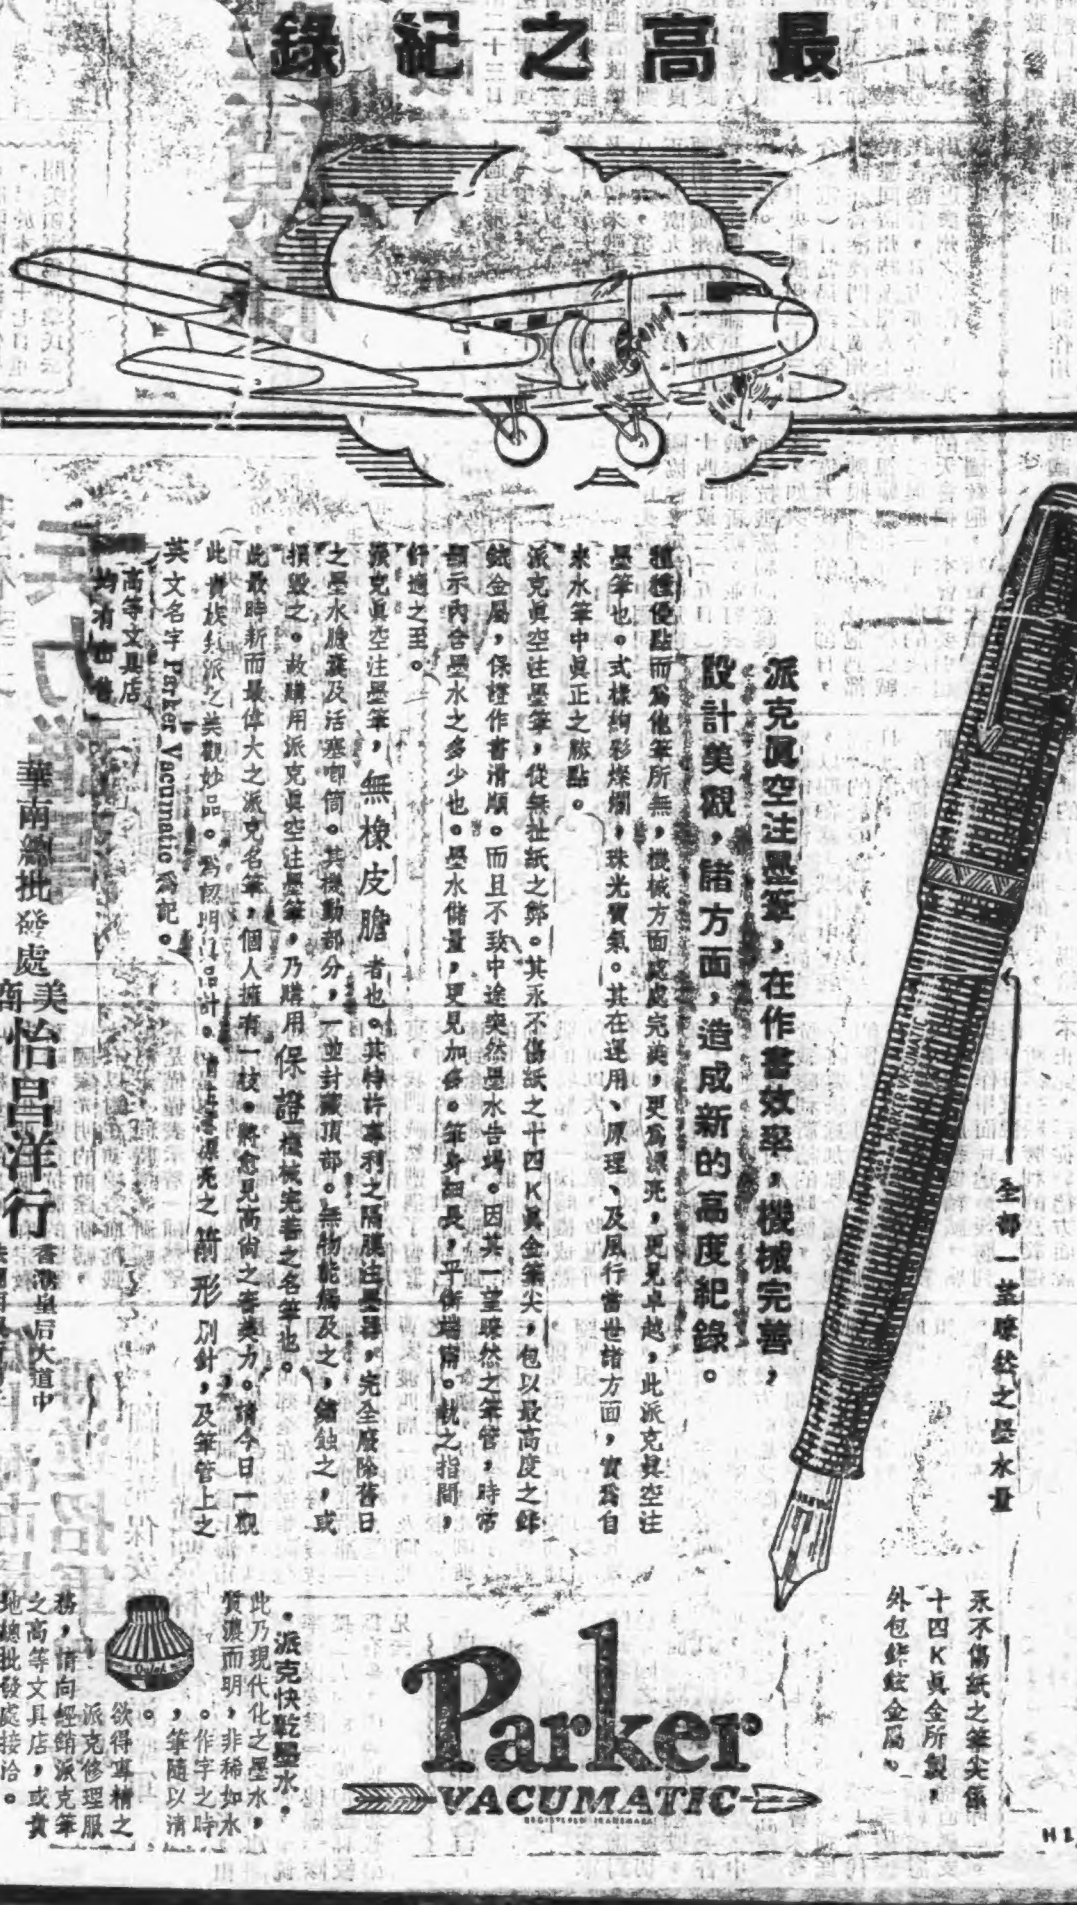 最高之紀錄
派克眞空注墨筆，在作書效率，機械完善，
設計美觀，諸方面，造成新的高度紀錄。
種種優點而爲他筆所無，機械方面處處完美，更爲漂亮，更見卓越，此派克眞空注
墨筆也。式樣絢彩燦爛，珠光寶氣。其在運用、原理、及風行當世諸方面，實爲自
來水筆中眞正之勝點。
派克眞空注墨筆，從無扯紙之弊。其永不傷紙之十四K眞金筆尖，包以最高度之鉌
鉉金屬，保證作書滑順。而且不致中途突然墨水告竭。因其一望瞭然之筆管，時常
顯示內含墨水之多少也。墨水儲量，更見加多。筆身細長，平衡端甯。執之指間，
舒適之至。
派克眞空注墨筆，無橡皮膽者也。其特許專利之隔膜注墨器，完全廢除舊日
之墨水膽囊及活塞喞筒。其機動部分，一並封藏頂部。無物能觸及之，銹蝕之，或
損毀之。故購用派克眞空注墨筆，乃購用保證機械完善之名筆也。
此最時新而最偉大之派克名筆，個人擁有一枝。將愈見高尚之審美力。請今日一觀
此貴族氣派之美觀妙品。爲認明眞品計。請注意漂亮之箭形別針，及筆管上之
英文名字 Parker Vacumatic 爲記。
高等文具店
均有出售
華南總批發處
美商
怡昌洋行
香港皇后大道中
PARKER VACUMATIC
全部一望瞭然之墨水量
永不傷紙之筆尖係
十四K眞金所製，
外包鉌鉉金屬。
Parker
VACUMATIC
REGISTERED TRADEMARK
·派克快乾墨水·
此乃現代化之墨水，
質濃而明，非稀如水
。作字之時
，筆隨以清
。
Quink
欲得專精之
派克修理服
務，請向經銷派克筆
之高等文具店，或貴
地總批發處接洽。